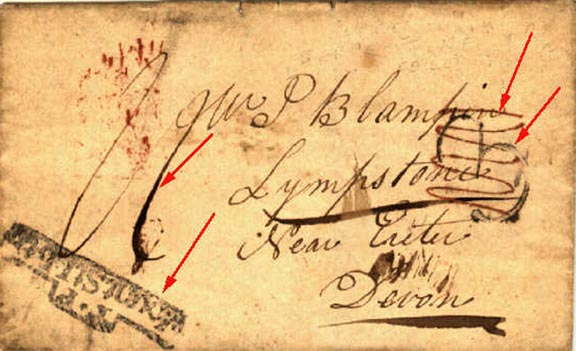 Mr P Blampin
Lympstone
Near Exeter
Devon